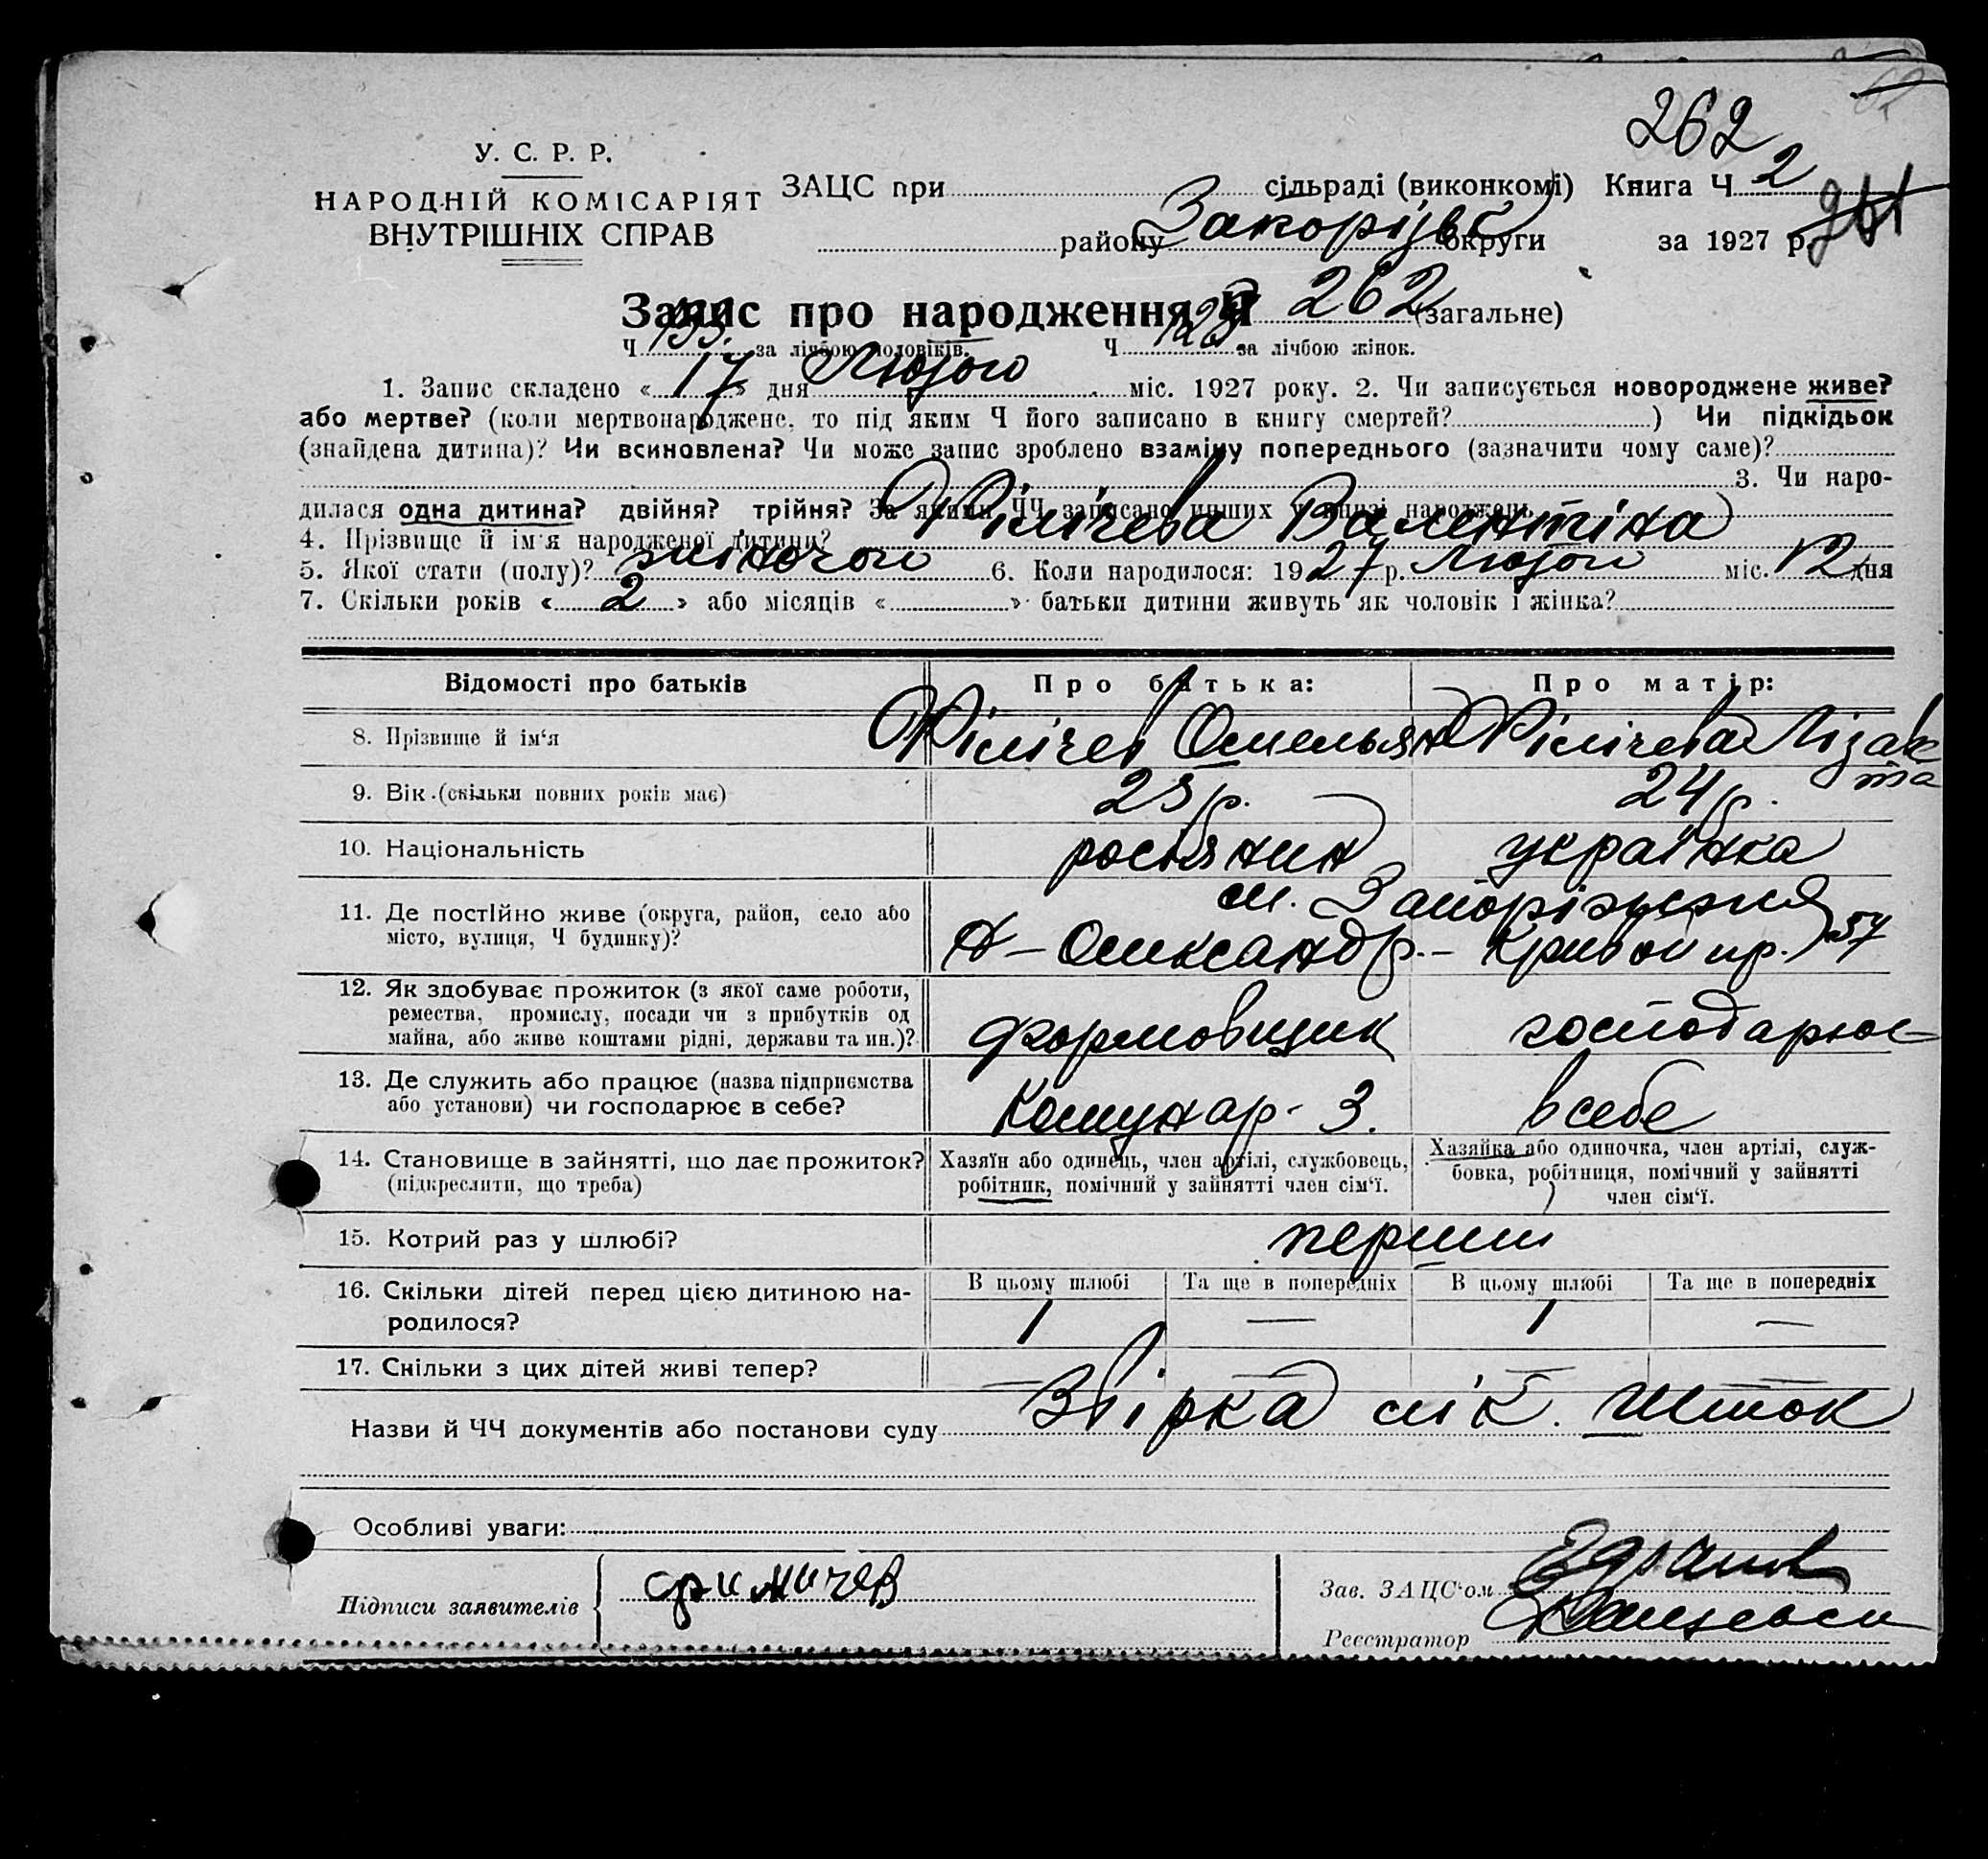 262
У. С. Р. Р.
НАРОДНІЙ КОМІСАРІЯТ
ВНУТРІШНІХ СПРАВ
ЗАЦС при сільраді (виконкомі) Книга Ч 2
району округи за 1927 р.
Запис про народження Ч 262 (загальне)
Ч 133 за лічбою чоловіків. Ч за лічбою жінок.
1. Запис складено « 17 » дня Лютого міс. 1927 року. 2. Чи записується новороджене живе?
або мертве? (коли мертвонароджене, то під яким Ч його записано в книгу смертей? ) Чи підкідьок
(знайдена дитина)? Чи всиновлена? Чи може запис зроблено взаміну попереднього (зазначити чому саме)?
3. Чи наро-
дилася одна дитина? двійня? трійня? За якими ЧЧ записано инших у книзі народжень
4. Прізвище й ім'я народженої дитини? Фімічева Валентіна
5. Якої стати (полу)? жіночого 6. Коли народилося: 1927 р. Лютого міс. 12 дня
7. Скільки років « 2 » або місяців « » батьки дитини живуть як чоловік і жінка?
Відомості про батьків Про батька: Про матір:
8. Прізвище й ім'я Фімічев Омельян Фімічева Лізавета
9. Вік (скільки повних років має) 25 р. 24 р.
10. Національність росіянин українка
11. Де постійно живе (округа, район, село або
місто, вулиця, Ч будинку)?
м. Запоріжжя
Н – Олександр. – Кривой пр. 57
12. Як здобуває прожиток (з якої саме роботи,
ремества, промислу, посади чи з прибутків од
майна, або живе коштами рідні, держави та ин.)?
формовщик господарює
13. Де служить або працює (назва підприємства
або установи) чи господарює в себе?
Комунар - З. в себе
14. Становище в зайнятті, що дає прожиток?
(підкреслити, що треба)
Хазяїн або одинець, член артілі, службовець,
робітник, помічний у зайнятті член сім'ї.
Хазяйка або одиночка, член артілі, служ-
бовка, робітниця, помічний у зайнятті
член сім'ї.
15. Котрий раз у шлюбі? перший
В цьому шлюбі Та ще в попередніх В цьому шлюбі Та ще в попередніх
16. Скільки дітей перед цією дитиною на-
родилося?
1 — 1 —
17. Скільки з цих дітей живі тепер? — — — —
Назви й ЧЧ документів або постанови суду
Особливі уваги:
Підписи заявителів фимичев
Зав. ЗАЦС'ом
Реєстратор